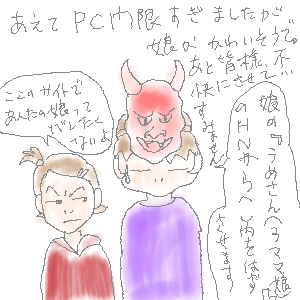 あえてPC内限すぎましたが
娘がかわいそうで。
あと皆様、不
快にさせて
すみません
ここのサイトで
あんたの娘って
バレたくないよ
娘の『うめさん(うママ娘)』
のHNから
をはず
させます